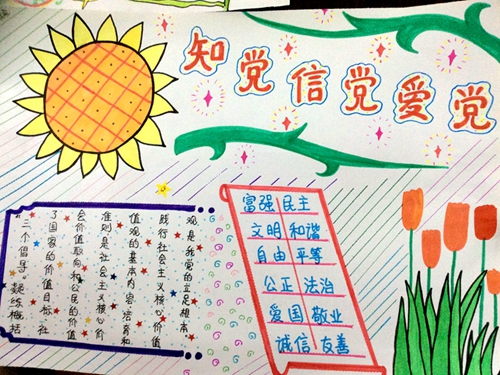 知党信党爱党
"三个倡导。凝练概括
了国家的价值目标社
会价值取向和公民的价值
准则是社会主义核心价
值观的基本内容培育和
践行社会主义核心价值
观是我党的立足根本
富强 民主
文明 和谐
自由 平等
公正 法治
爱国 敬业
诚信 友善